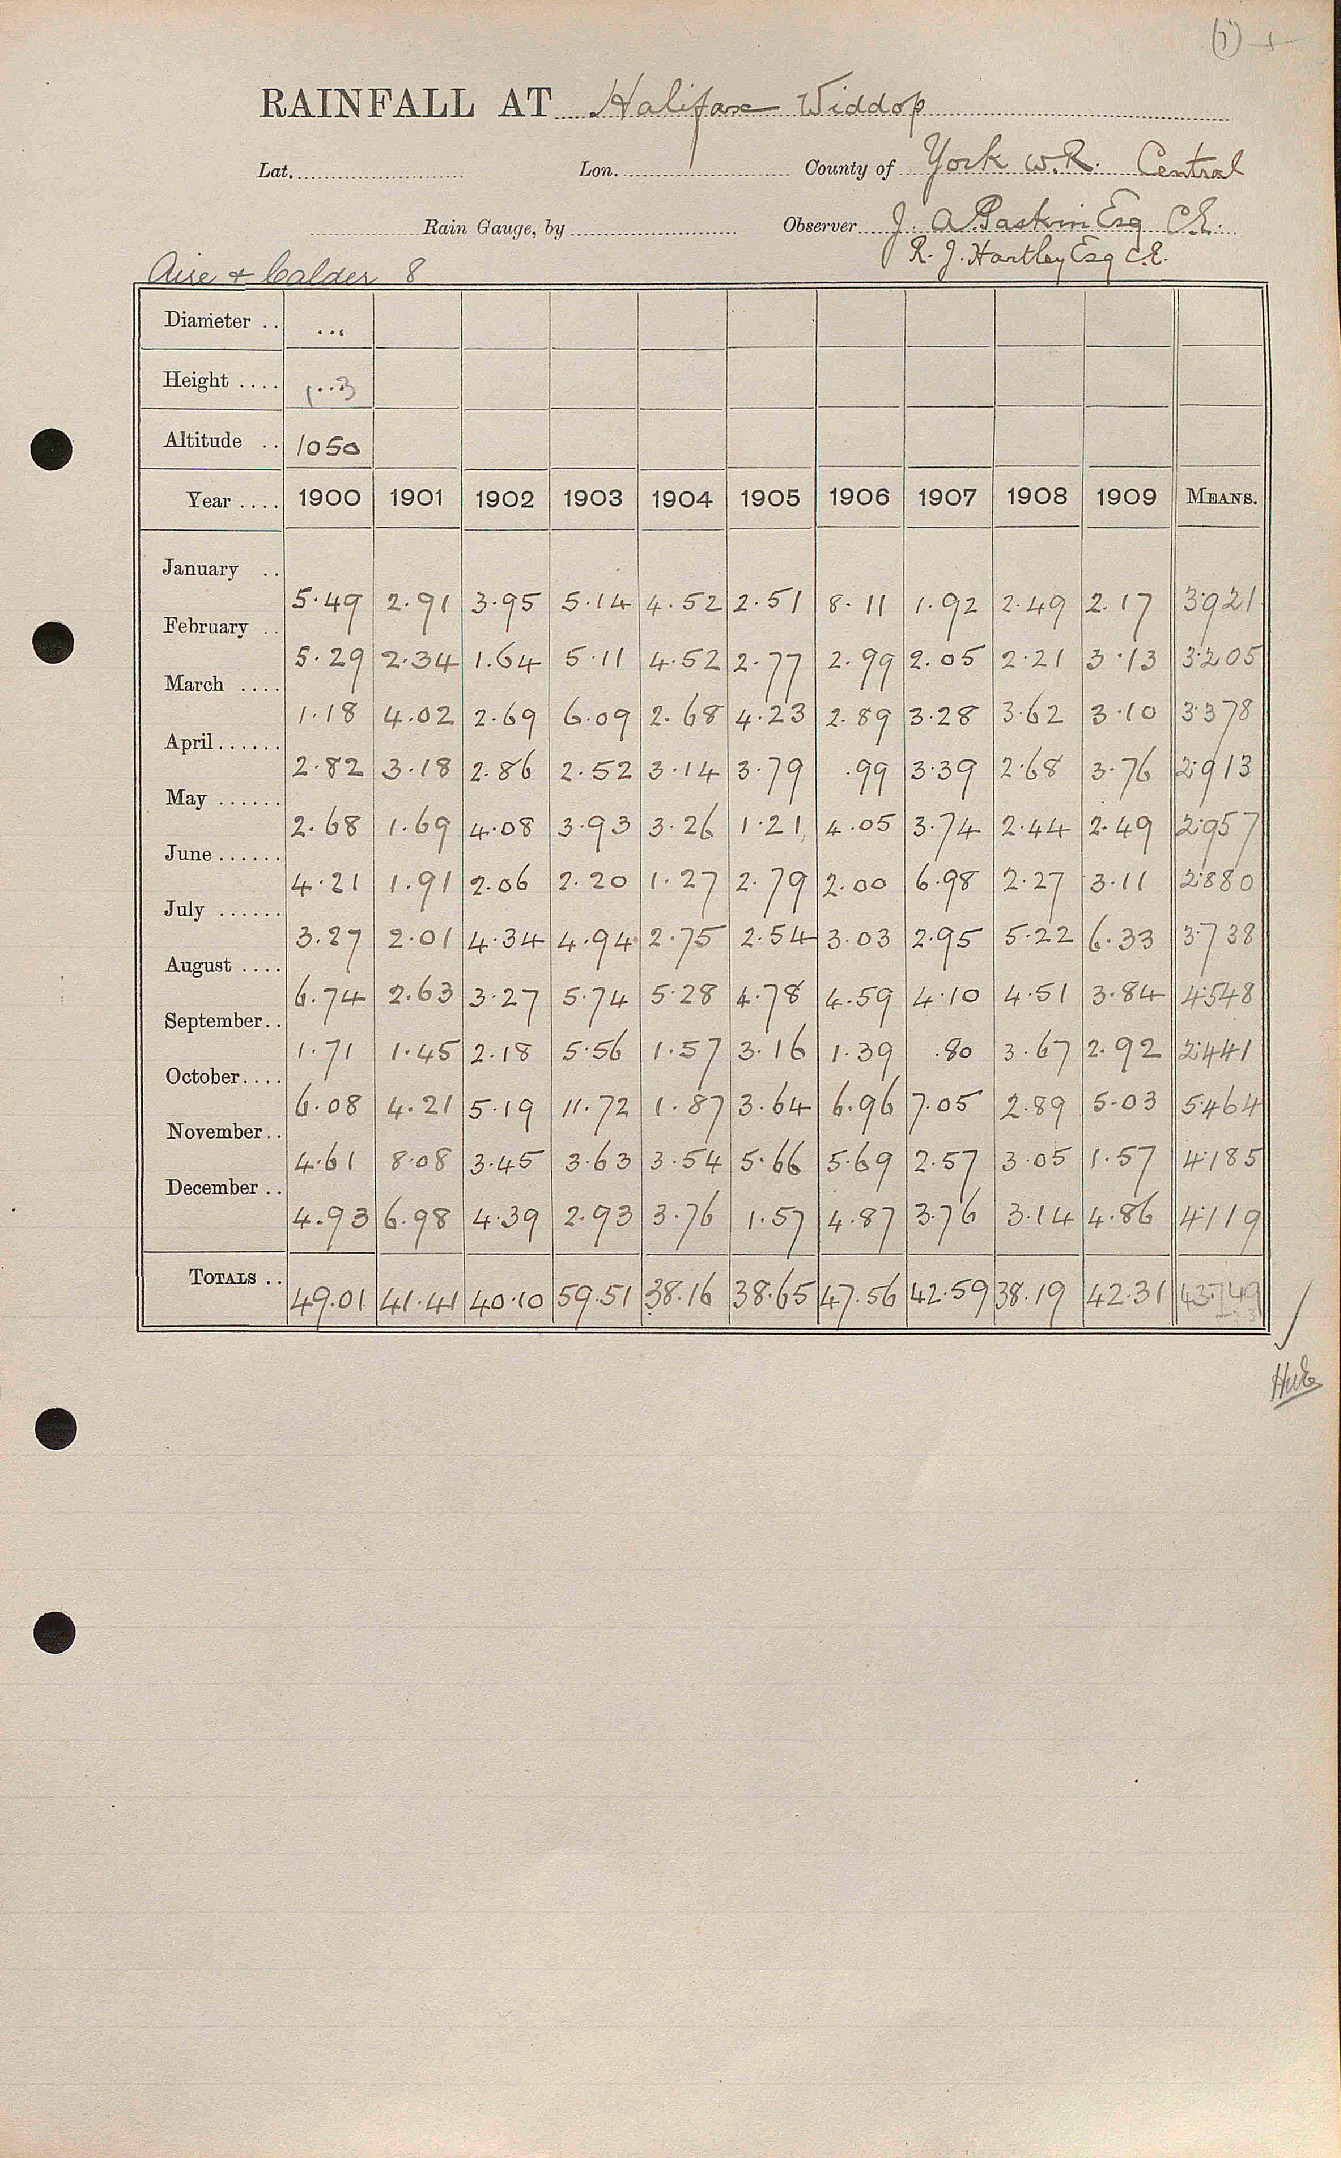 (1)
RAINFALL AT Halifax Widdop
Lat. Lon. County of York W.R. Central
Rain Gauge, by Observer J. A. Paskin Esq C.E.
R. J. Hartley Esq C.E.
Aire & Calder 8
Diameter .. ...
Height .... 1..3
Altitude .. 1050
Year .... 1900 1901 1902 1903 1904 1905 1906 1907 1908 1909 MEANS.
January .. 5.49 2.91 3.95 5.14 4.52 2.51 8.11 1.92 2.49 2.17 3.921
February .. 5.29 2.34 1.64 5.11 4.52 2.77 2.99 2.05 2.21 3.13 3.205
March .... 1.18 4.02 2.69 6.09 2.68 4.23 2.89 3.28 3.62 3.10 3.378
April ...... 2.82 3.18 2.86 2.52 3.14 3.79 .99 3.39 2.68 3.76 2.913
May ...... 2.68 1.69 4.08 3.93 3.26 1.21 4.05 3.74 2.44 2.49 2.957
June ...... 4.21 1.91 2.06 2.20 1.27 2.79 2.00 6.98 2.27 3.11 2.880
July ...... 3.27 2.01 4.34 4.94 2.75 2.54 3.03 2.95 5.22 6.33 3.738
August .... 6.74 2.63 3.27 5.74 5.28 4.78 4.59 4.10 4.51 3.84 4.548
September.. 1.71 1.45 2.18 5.56 1.57 3.16 1.39 .80 3.67 2.92 2.441
October.... 6.08 4.21 5.19 11.72 1.87 3.64 6.96 7.05 2.89 5.03 5.464
November.. 4.61 8.08 3.45 3.63 3.54 5.66 5.69 2.57 3.05 1.57 4.185
December .. 4.93 6.98 4.39 2.93 3.76 1.57 4.87 3.76 3.14 4.86 4.119
TOTALS .. 49.01 41.41 40.10 59.51 38.16 38.65 47.56 42.59 38.19 42.31 43.749